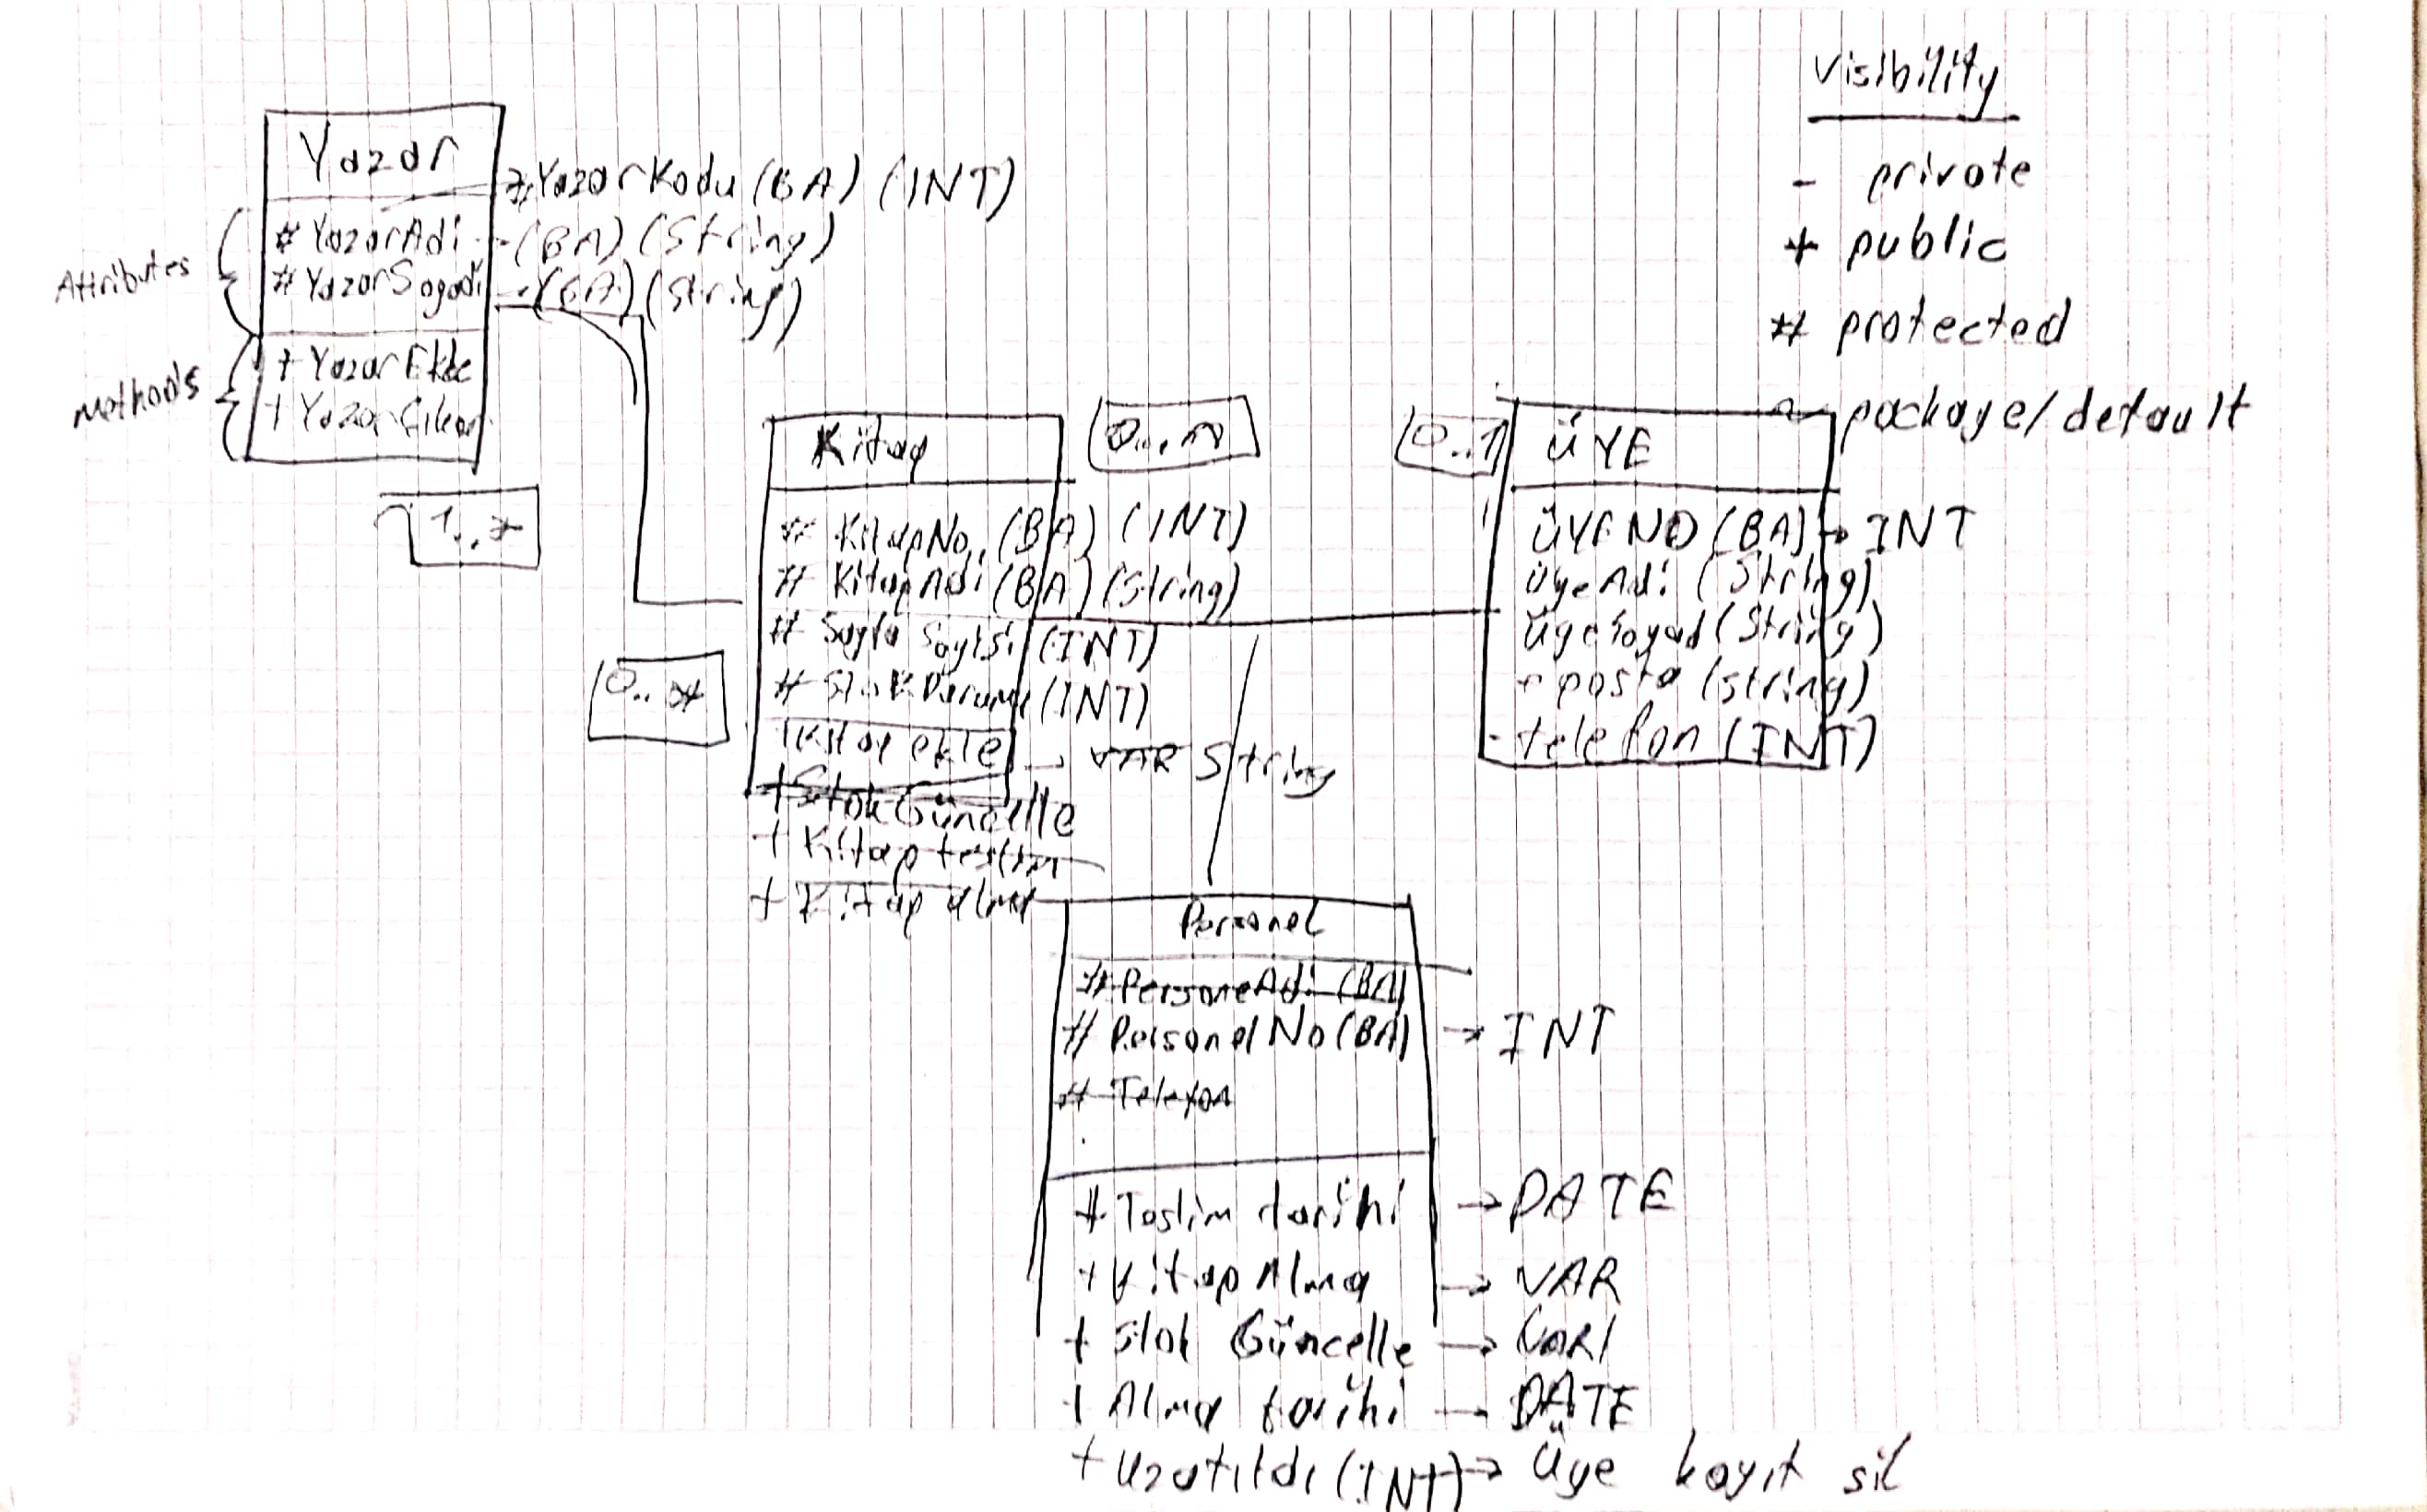 Visibility
- private
+ public
# protected
~ package/default
Yazar
# YazarKodu (BA) (INT)
Attributes
# YazarAdi - (BA) (String)
# YazarSoyadi - (BA) (String)
Methods
+ YazarEkle
+ YazarÇıkar
1..*
Kitap
0...n
0..1
# KitapNo (BA) (INT)
# KitapAdi (BA) (String)
# Sayfa Sayısı (INT)
# StokDurumu (INT)
0..*
+Kitap ekle → VAR String
+StokGüncelle
+ Kitap teslim
+ Kitap alma
ÜYE
ÜYENO (BA) → INT
üyeAdi (String)
üyeSoyad (String)
e posta (string)
- telefon (INT)
Personel
# PersoneAdi (BA)
# PersonelNo (BA) → INT
# Telefon
+ Teslim tarihi → DATE
+ Kitap Alma → VAR
+ Stok Güncelle →
+ Alma tarihi → DATE
+ Uzatıldı (INT) → Üye kayıt sil